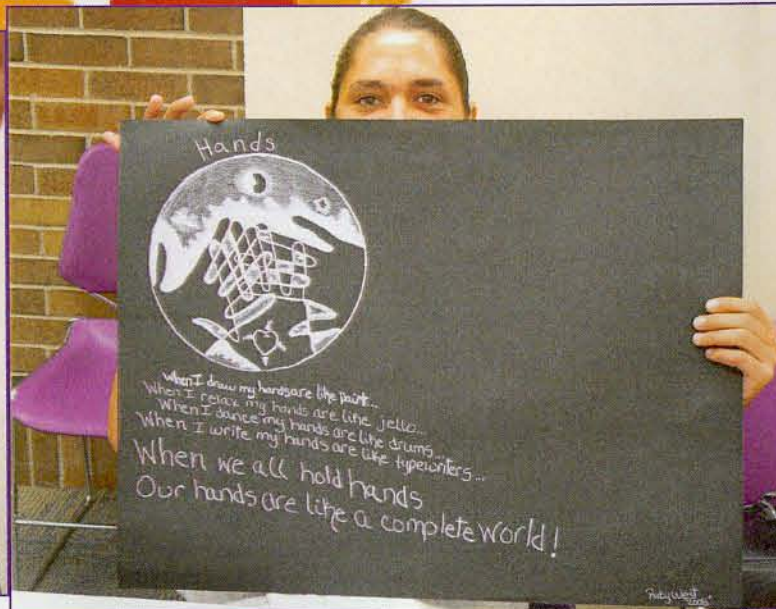 Hands
When I draw my hands are like paint...
When I relax my hands are like jello...
When I dance my hands are like drums...
When I write my hands are like typewriters...
When we all hold hands
Our hands are like a complete world!
Ruby West
2005